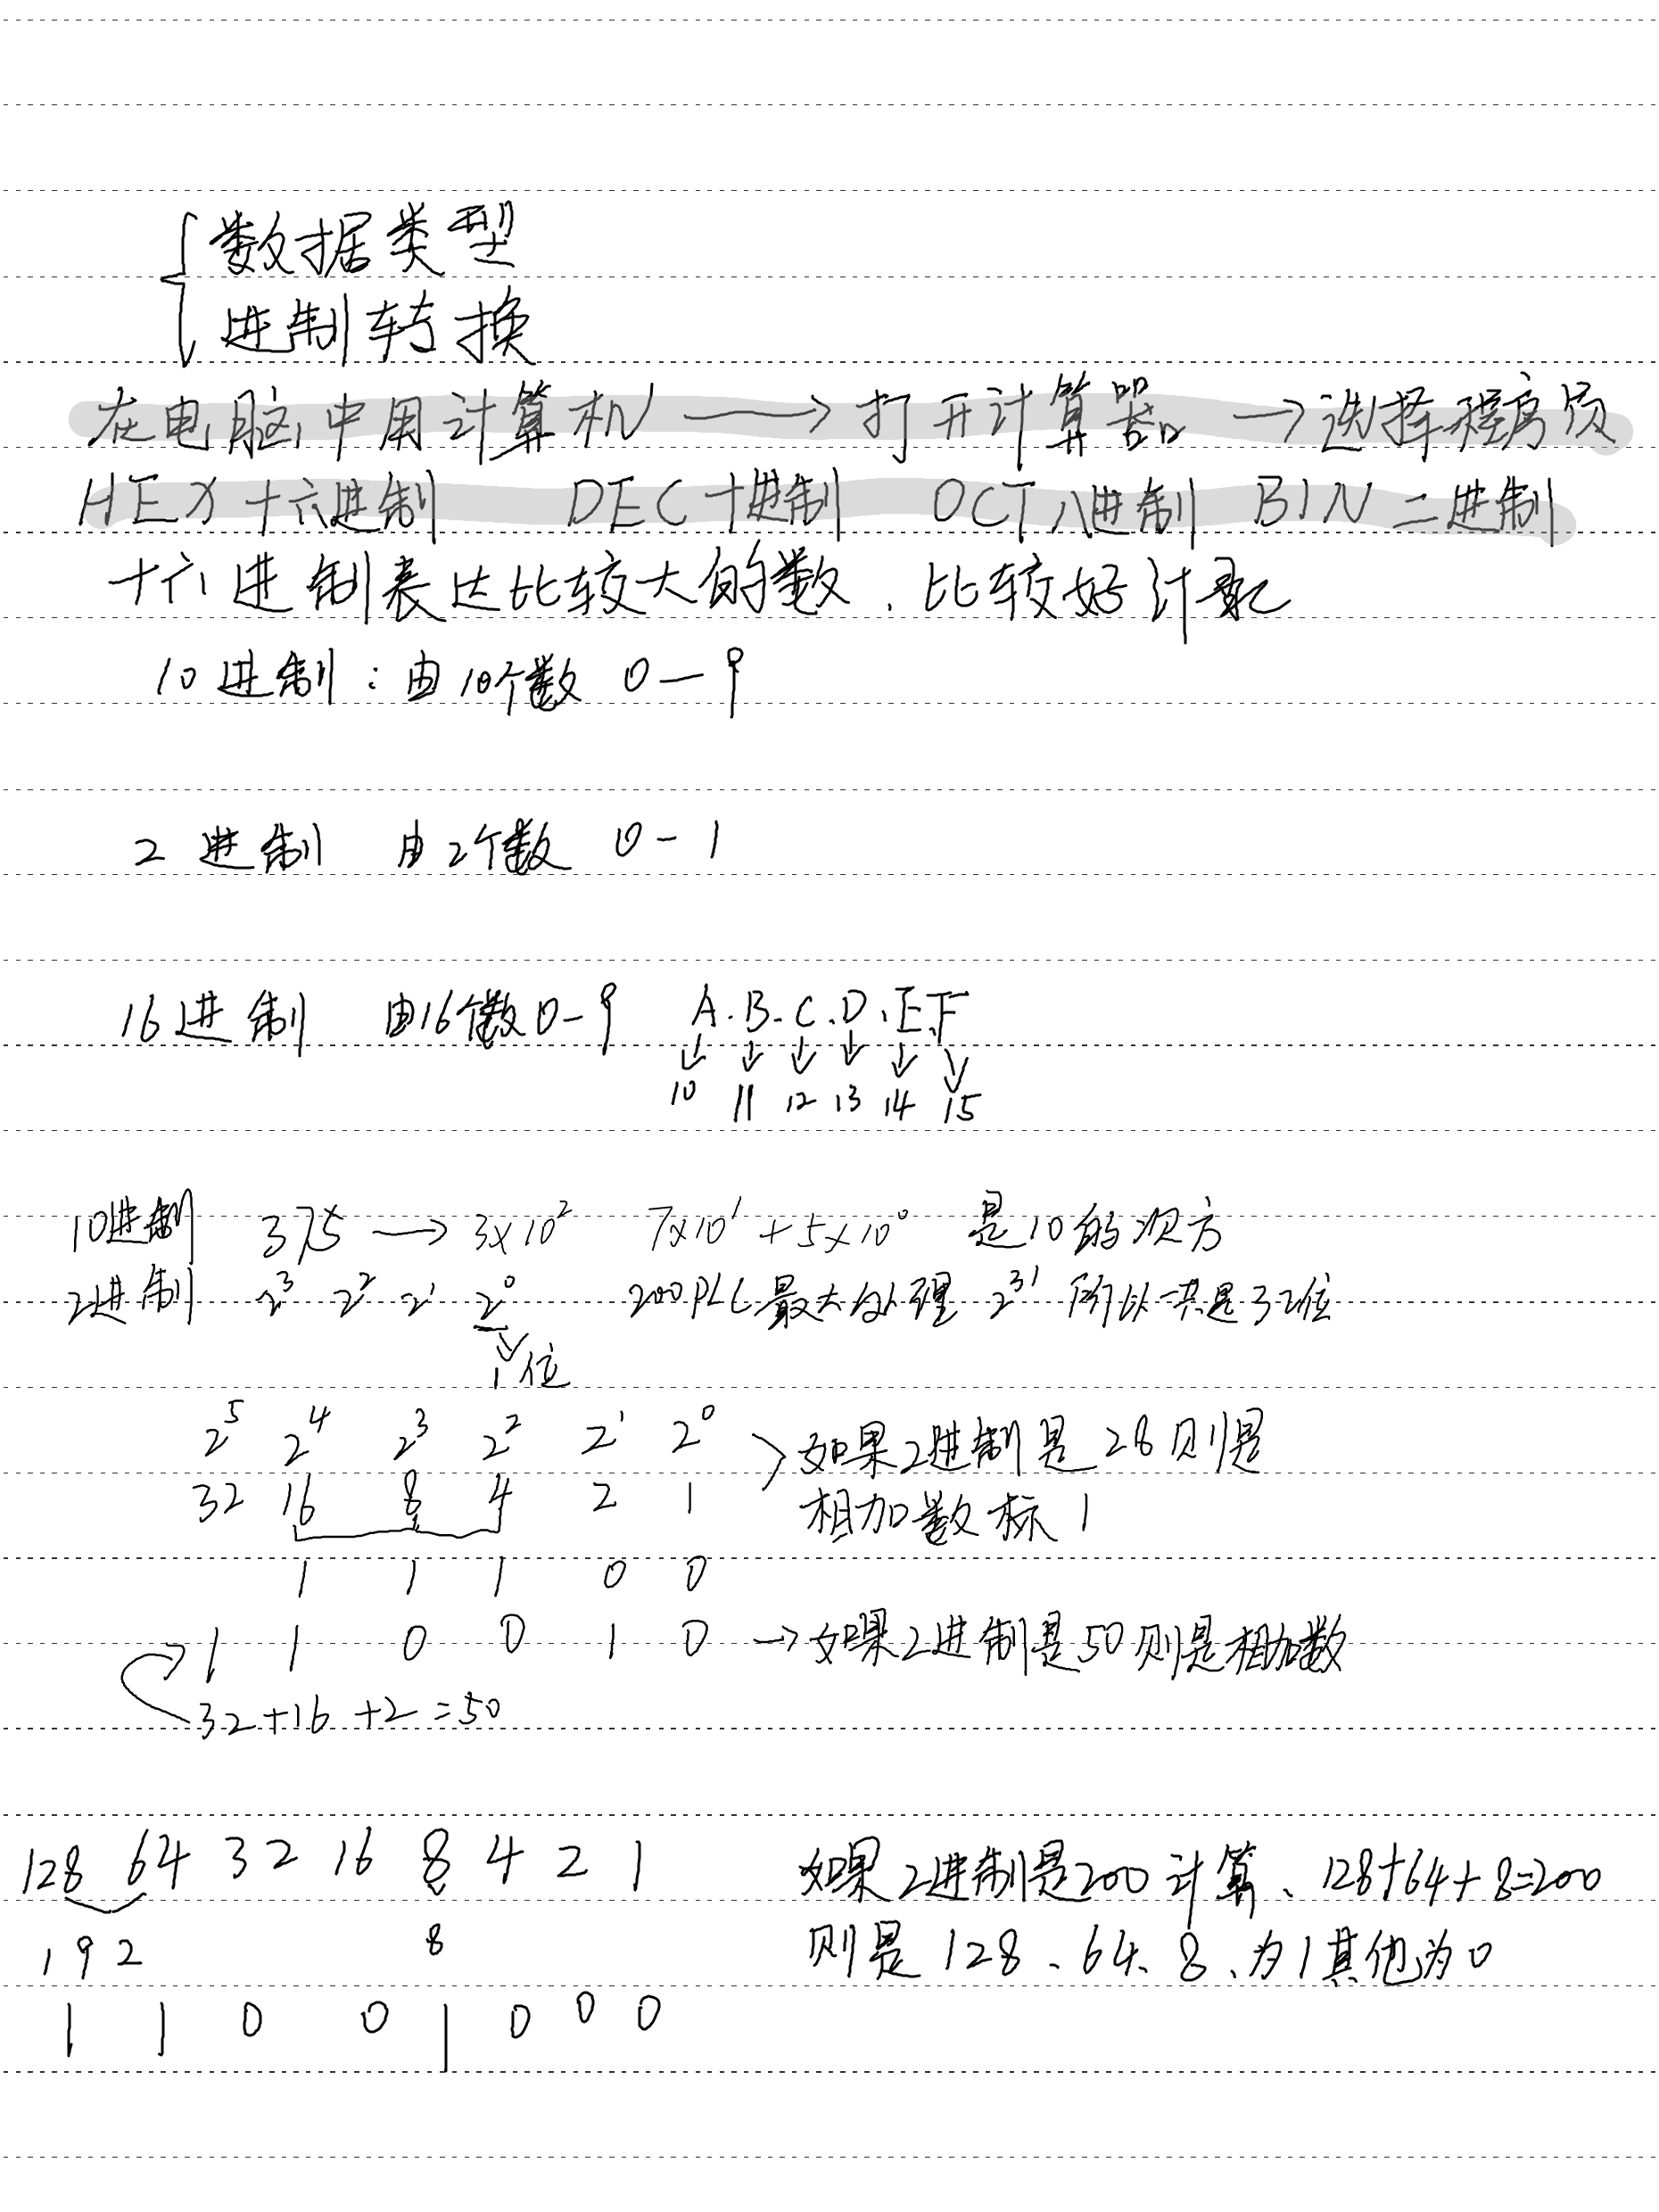 数据类型
进制转换
在电脑中用计算机 → 打开计算器 → 选择程序员
HEX 十六进制 DEC 十进制 OCT 八进制 BIN 二进制
十六进制表达比较大的数、比较好计
10进制：由10个数 0—9
2进制 由2个数 0-1
16进制 由16个数0-9 A.B.C.D.E.F
10 11 12 13 14 15
10进制 375 → 3×10² 7×10¹+5×10⁰ 是10的次方
2进制 2³ 2² 2¹ 2⁰ 200PLC最大处理 2³¹ 所以一共是32位
1位
2⁵ 2⁴ 2³ 2² 2¹ 2⁰ 如果2进制是28则是
32 16 8 4 2 1 相加数标1
1 1 1 0 0
1 1 0 0 1 0 → 如果2进制是50则是相加数
32+16+2=50
128 64 32 16 8 4 2 1 如果2进制是200计算、128+64+8=200
192 8 则是128、64、8、为1其他为0
1 1 0 0 1 0 0 0